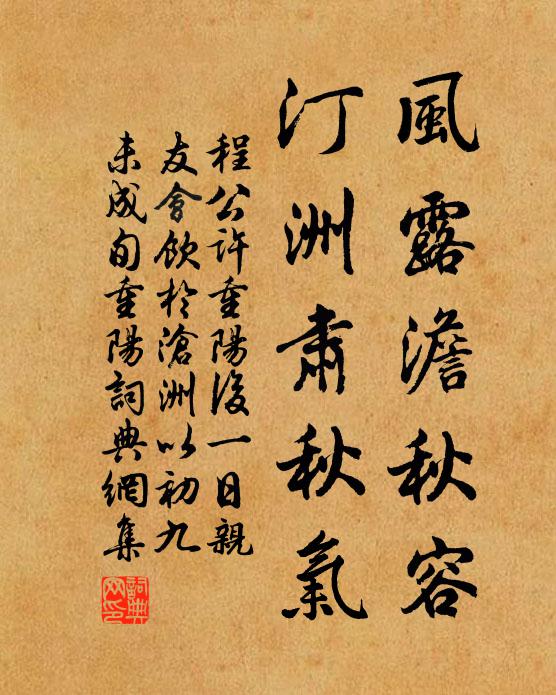 風露澹秋容
汀洲肅秋氣
程公許重陽後一日親
友會飲於滄洲以初九
未成旬重陽詞典網集
詞典網印